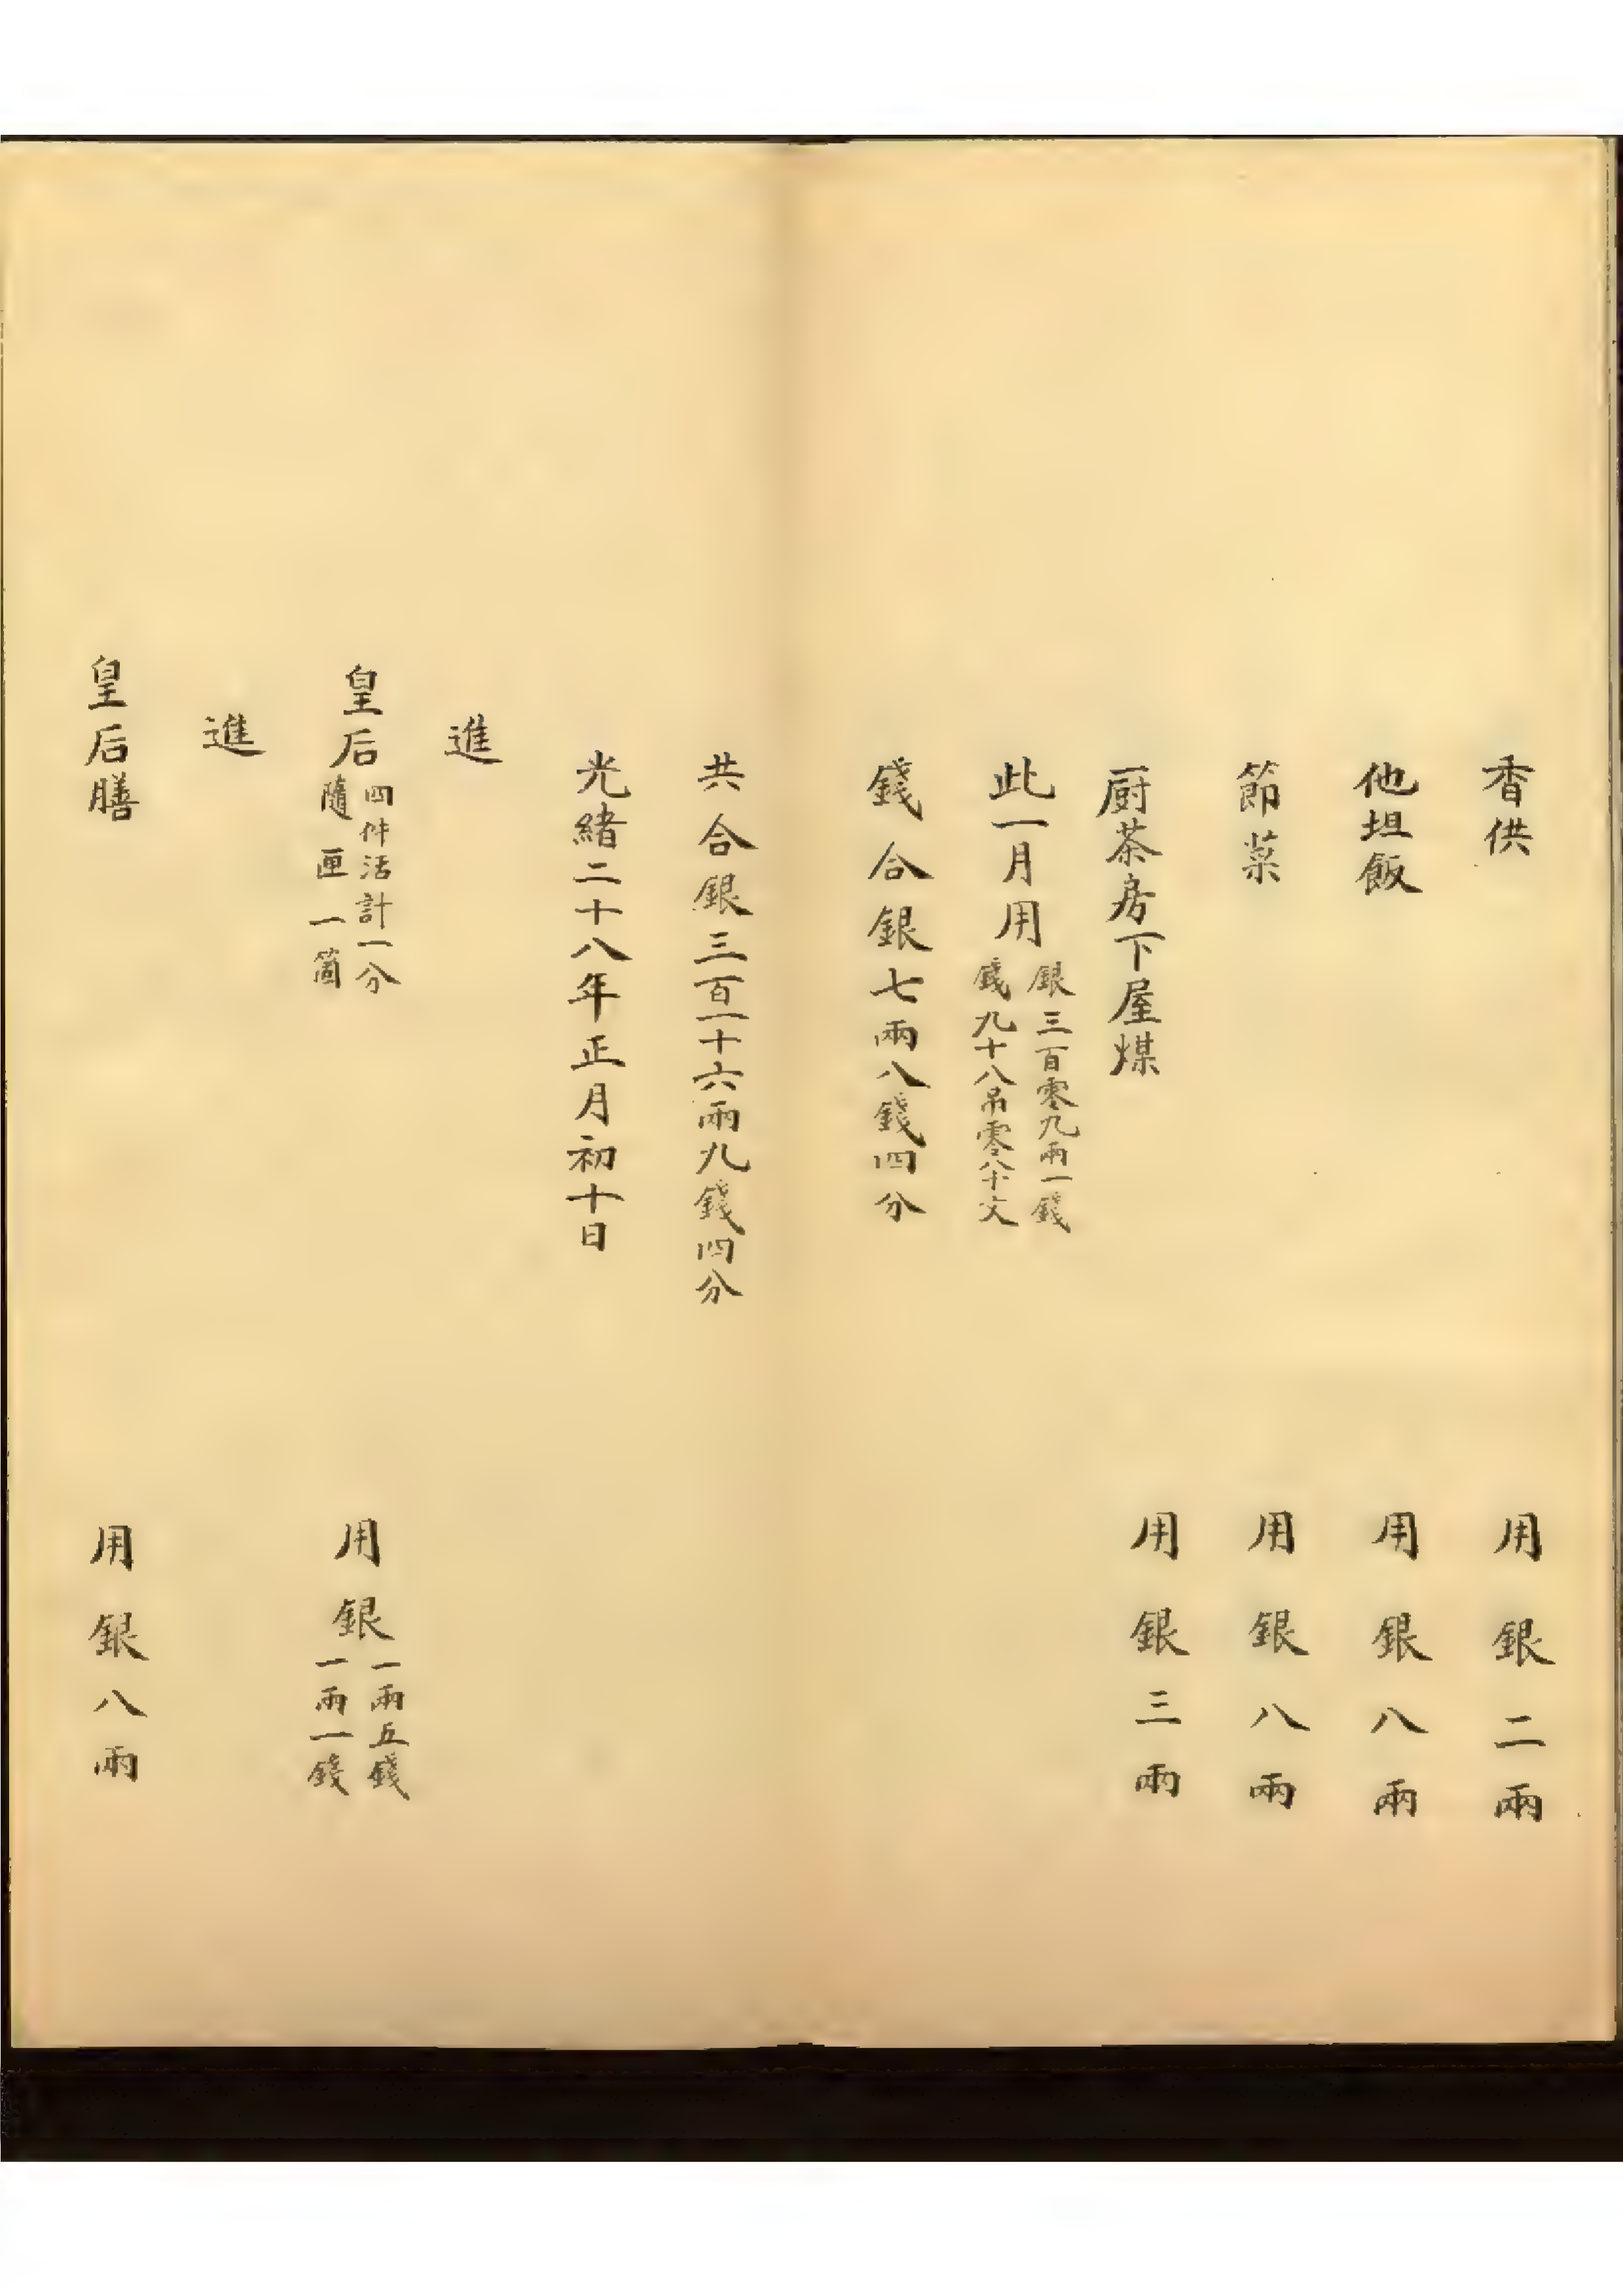 香供　用銀二兩
他坦飯　用銀八兩
節菜　用銀八兩
厨茶房下屋煤　用銀三兩
此一月用銀三百零九兩一錢
錢九十八吊零八十文
錢合銀七兩八錢四分
共合銀三百一十六兩九錢四分
光緒二十八年正月初十日
進
皇后四件活計一分　用銀一兩五錢
隨匣一箇　一兩一錢
進
皇后膳　用銀八兩